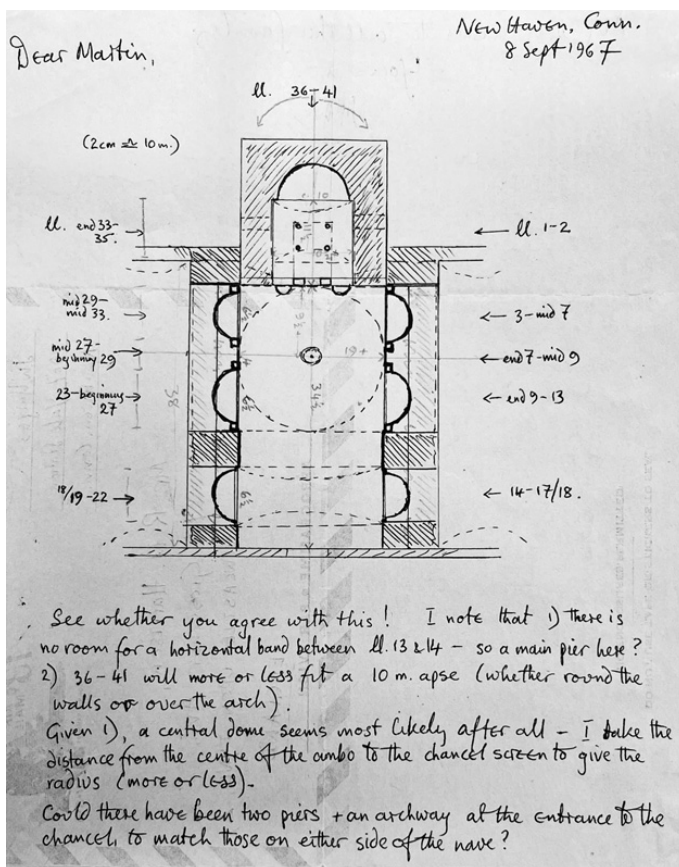 New Haven, Conn.
8 Sept 1967
Dear Martin,
ll. 36-41
(2cm ≏ 10m.)
ll. end 33-
35.
← ll. 1-2
mid 29-
mid 33. →
← 3-mid 7
mid 27-
beginning 29 →
← end 7-mid 9
23-beginning →
27
← end 9-13
18/19-22 →
← 14-17/18.
See whether you agree with this! I note that 1) there is
no room for a horizontal band between ll. 13 & 14 - so a main pier here?
2) 36-41 will more or less fit a 10 m. apse (whether round the
walls or over the arch).
Given 1), a central dome seems most likely after all - I take the
distance from the centre of the ambo to the chancel screen to give the
radius (more or less).
Could there have been two piers + an archway at the entrance to the
chancel, to match those on either side of the nave?